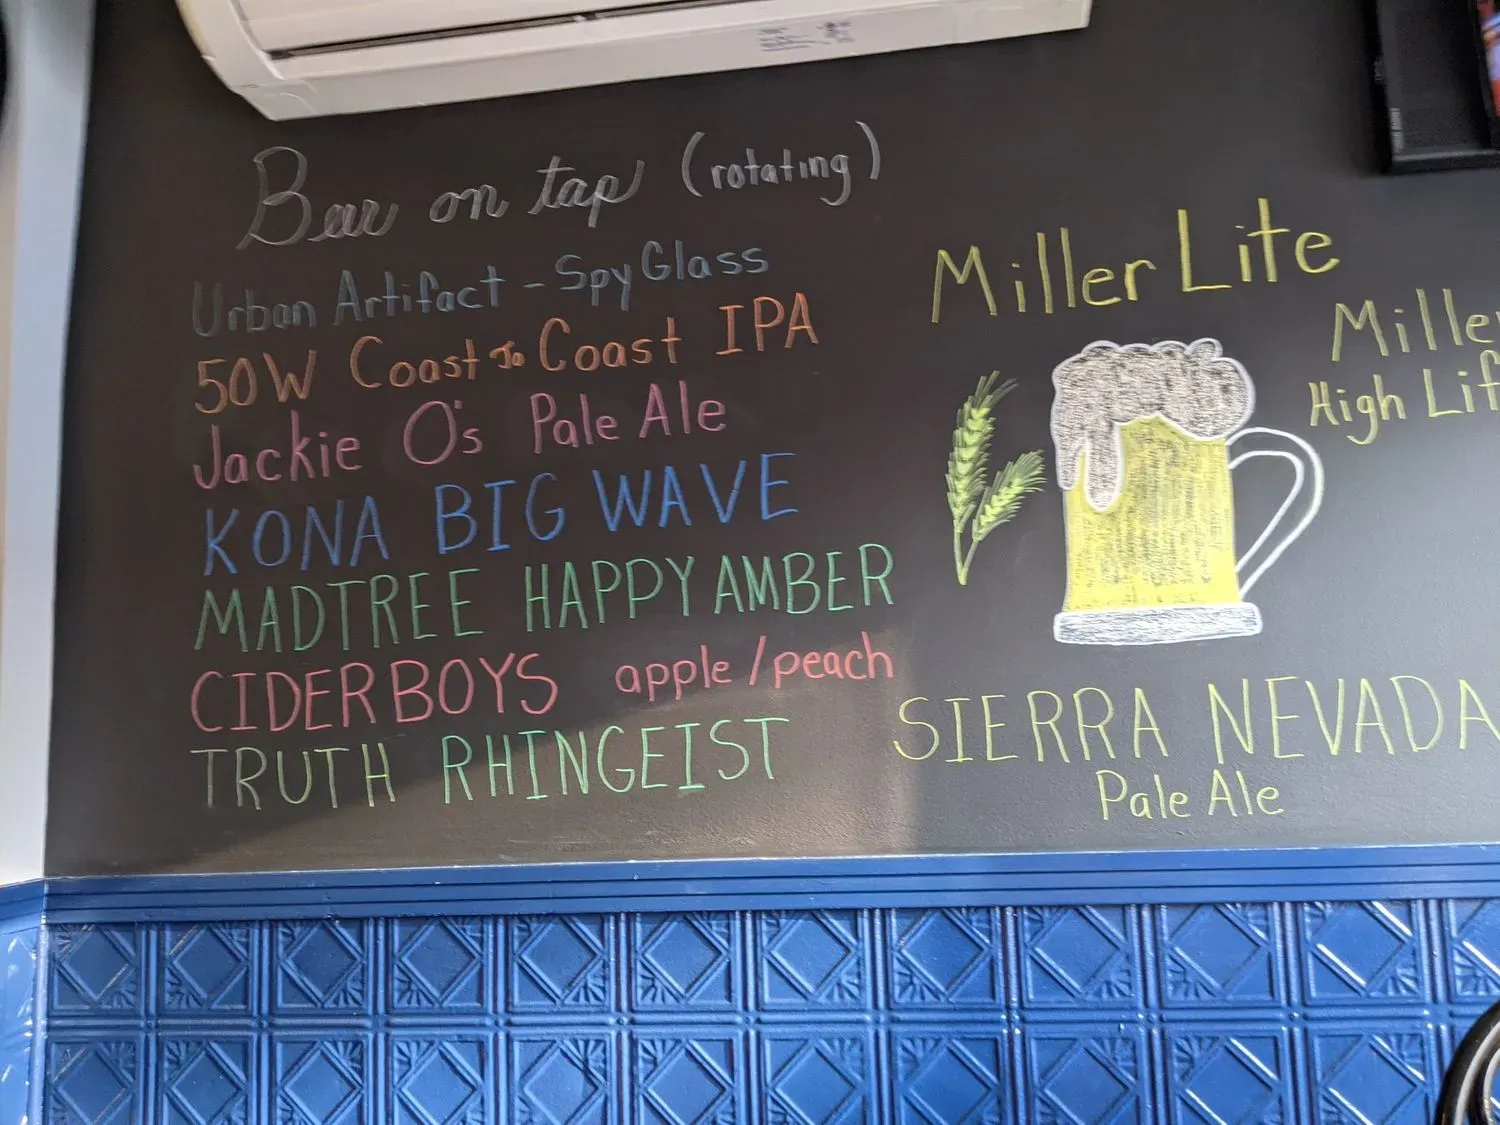 Beer on tap (rotating)
Urban Artifact - Spy Glass
50W Coast to Coast IPA
Jackie O's Pale Ale
KONA BIG WAVE
MADTREE HAPPY AMBER
CIDERBOYS apple/peach
TRUTH RHINGEIST
Miller Lite
Mille
High Lif
SIERRA NEVADA
Pale Ale